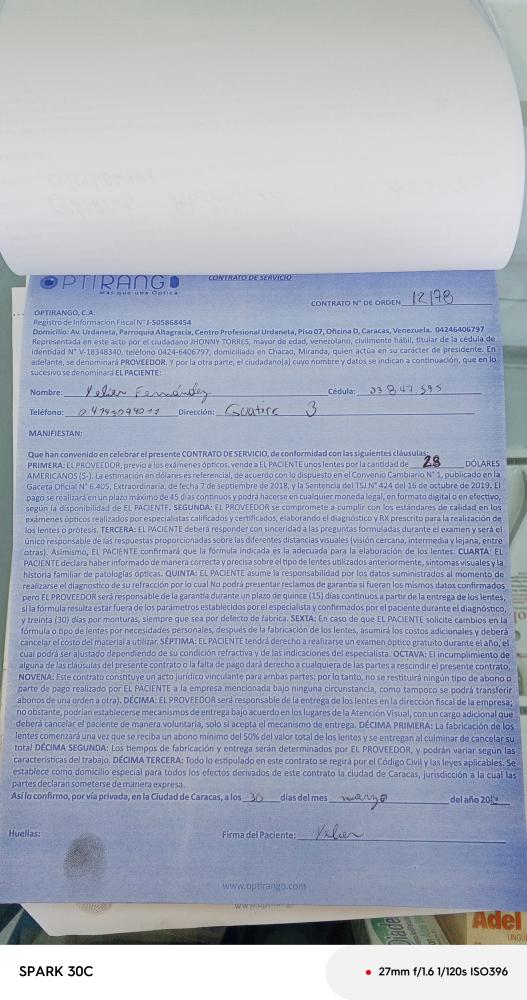 OPTIRANGO
Más que una Óptica
CONTRATO DE SERVICIO
CONTRATO N° DE ORDEN 12178
OPTIRANGO, C.A.
Registro de Información Fiscal N° J-505868454
Domicilio: Av. Urdaneta, Parroquia Altagracia, Centro Profesional Urdaneta, Piso 07, Oficina D, Caracas, Venezuela. 04246406797
Representada en este acto por el ciudadano JHONNY TORRES, mayor de edad, venezolano, civilmente hábil, titular de la cédula de
identidad N° V-18348340, teléfono 0424-6406797, domiciliado en Chacao, Miranda, quien actúa en su carácter de presidente. En
adelante, se denominará PROVEEDOR. Y por la otra parte, el ciudadano(a) cuyo nombre y datos se indican a continuación, que en lo
sucesivo se denominará EL PACIENTE:
Nombre: Yelier Fernández Cédula: 23 847 595
Teléfono: Dirección: Guatire 3
MANIFIESTAN:
Que han convenido en celebrar el presente CONTRATO DE SERVICIO, de conformidad con las siguientes cláusulas:
PRIMERA: EL PROVEEDOR, previo a los exámenes ópticos, vende a EL PACIENTE unos lentes por la cantidad de 28 DÓLARES
AMERICANOS ($-). La estimación en dólares es referencial, de acuerdo con lo dispuesto en el Convenio Cambiario N° 1, publicado en la
Gaceta Oficial N° 6.405, Extraordinaria, de fecha 7 de septiembre de 2018, y la Sentencia del TSJ N° 424 del 16 de octubre de 2019. El
pago se realizará en un plazo máximo de 45 días continuos y podrá hacerse en cualquier moneda legal, en formato digital o en efectivo,
según la disponibilidad de EL PACIENTE. SEGUNDA: EL PROVEEDOR se compromete a cumplir con los estándares de calidad en los
exámenes ópticos realizados por especialistas calificados y certificados, elaborando el diagnóstico y RX prescrito para la realización de
los lentes o prótesis. TERCERA: EL PACIENTE deberá responder con sinceridad a las preguntas formuladas durante el examen y será el
único responsable de las respuestas proporcionadas sobre las diferentes distancias visuales (visión cercana, intermedia y lejana, entre
otras). Asimismo, EL PACIENTE confirmará que la fórmula indicada es la adecuada para la elaboración de los lentes. CUARTA: EL
PACIENTE declara haber informado de manera correcta y precisa sobre el tipo de lentes utilizados anteriormente, síntomas visuales y la
historia familiar de patologías ópticas. QUINTA: EL PACIENTE asume la responsabilidad por los datos suministrados al momento de
realizarse el diagnostico de su refracción por lo cual No podrá presentar reclamos de garantía si fueran los mismos datos confirmados
pero EL PROVEEDOR será responsable de la garantía durante un plazo de quince (15) días continuos a partir de la entrega de los lentes,
si la fórmula resulta estar fuera de los parámetros establecidos por el especialista y confirmados por el paciente durante el diagnóstico,
y treinta (30) días por monturas, siempre que sea por defecto de fábrica. SEXTA: En caso de que EL PACIENTE solicite cambios en la
fórmula o tipo de lentes por necesidades personales, después de la fabricación de los lentes, asumirá los costos adicionales y deberá
cancelar el costo del material a utilizar. SÉPTIMA: EL PACIENTE tendrá derecho a realizarse un examen óptico gratuito durante el año, el
cual podrá ser ajustado dependiendo de su condición refractiva y de las indicaciones del especialista. OCTAVA: El incumplimiento de
alguna de las cláusulas del presente contrato o la falta de pago dará derecho a cualquiera de las partes a rescindir el presente contrato.
NOVENA: Este contrato constituye un acto jurídico vinculante para ambas partes; por lo tanto, no se restituirá ningún tipo de abono o
parte de pago realizado por EL PACIENTE a la empresa mencionada bajo ninguna circunstancia, como tampoco se podrá transferir
abonos de una orden a otra). DÉCIMA: EL PROVEEDOR será responsable de la entrega de los lentes en la dirección fiscal de la empresa;
no obstante, podrán establecerse mecanismos de entrega bajo acuerdo en los lugares de la Atención Visual, con un cargo adicional que
deberá cancelar el paciente de manera voluntaria, solo si acepta el mecanismo de entrega. DÉCIMA PRIMERA: La fabricación de los
lentes comenzará una vez que se reciba un abono mínimo del 50% del valor total de los lentes y se entregan al culminar de cancelar su
total DÉCIMA SEGUNDA: Los tiempos de fabricación y entrega serán determinados por EL PROVEEDOR, y podrán variar según las
características del trabajo. DÉCIMA TERCERA: Todo lo estipulado en este contrato se regirá por el Código Civil y las leyes aplicables. Se
establece como domicilio especial para todos los efectos derivados de este contrato la ciudad de Caracas, jurisdicción a la cual las
partes declaran someterse de manera expresa.
Así lo confirmo, por vía privada, en la Ciudad de Caracas, a los 30 días del mes marzo del año 20
Huellas: Firma del Paciente: Yelier
www.optirango.com
Adel
UNGÜ
SPARK 30C
27mm f/1.6 1/120s ISO396